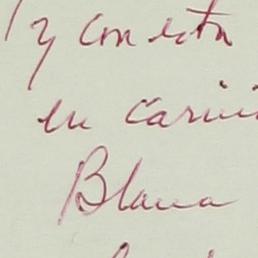 y con esta
en cariñ
Blanca